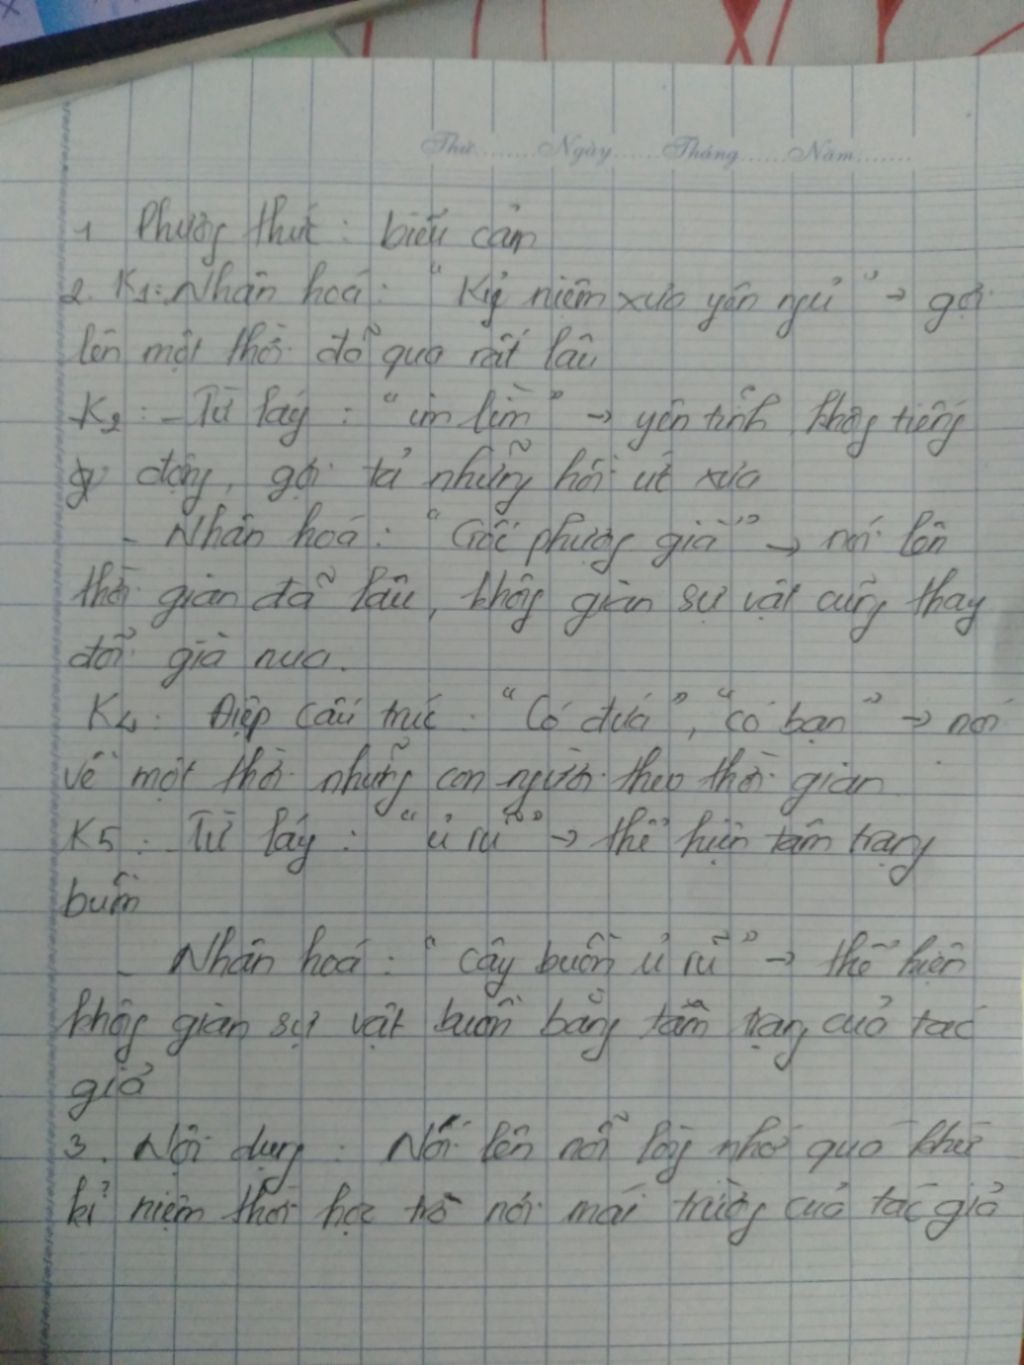 Thứ.......Ngày......Tháng......Năm.......
1 Phương thức : biểu cảm
2. K1: Nhân hoá : "Kỷ niệm xưa yên ngủ" → gợi
lên một thời đã qua rất lâu
K2 : - Từ láy : "im lìm" → yên tĩnh, không tiếng
động, gợi tả những hồi ức xưa
- Nhân hoá : "Gốc phượng già" → nói lên
thời gian đã lâu, không gian sự vật cũng thay
đổi già nua.
K4 : Điệp cấu trúc : "Có đứa", "có bạn" → nói
về một thời những con người theo thời gian
K5 : - Từ láy : "ủ rũ" → thể hiện tâm trạng
buồn
- Nhân hoá : "cây buồn ủ rũ" → thể hiện
không gian sự vật buồn bằng tâm trạng của tác
giả
3. Nội dung : Nói lên nỗi lòng nhớ quá khứ
kỉ niệm thời học trò nơi mái trường của tác giả